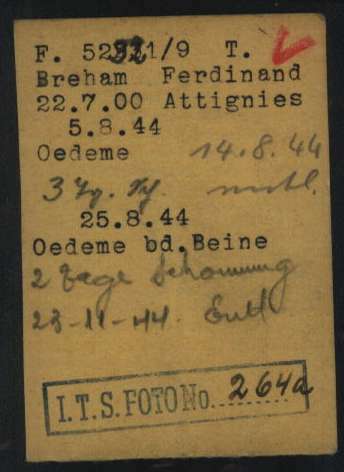 F. 52321/9 T.
Breham Ferdinand
22.7.00 Attignies
5.8.44
Oedeme 14.8.44
3
25.8.44
Oedeme bd.Beine
2 Tage Schonung
23-11-44. Entl
I.T.S. FOTO No. 264a